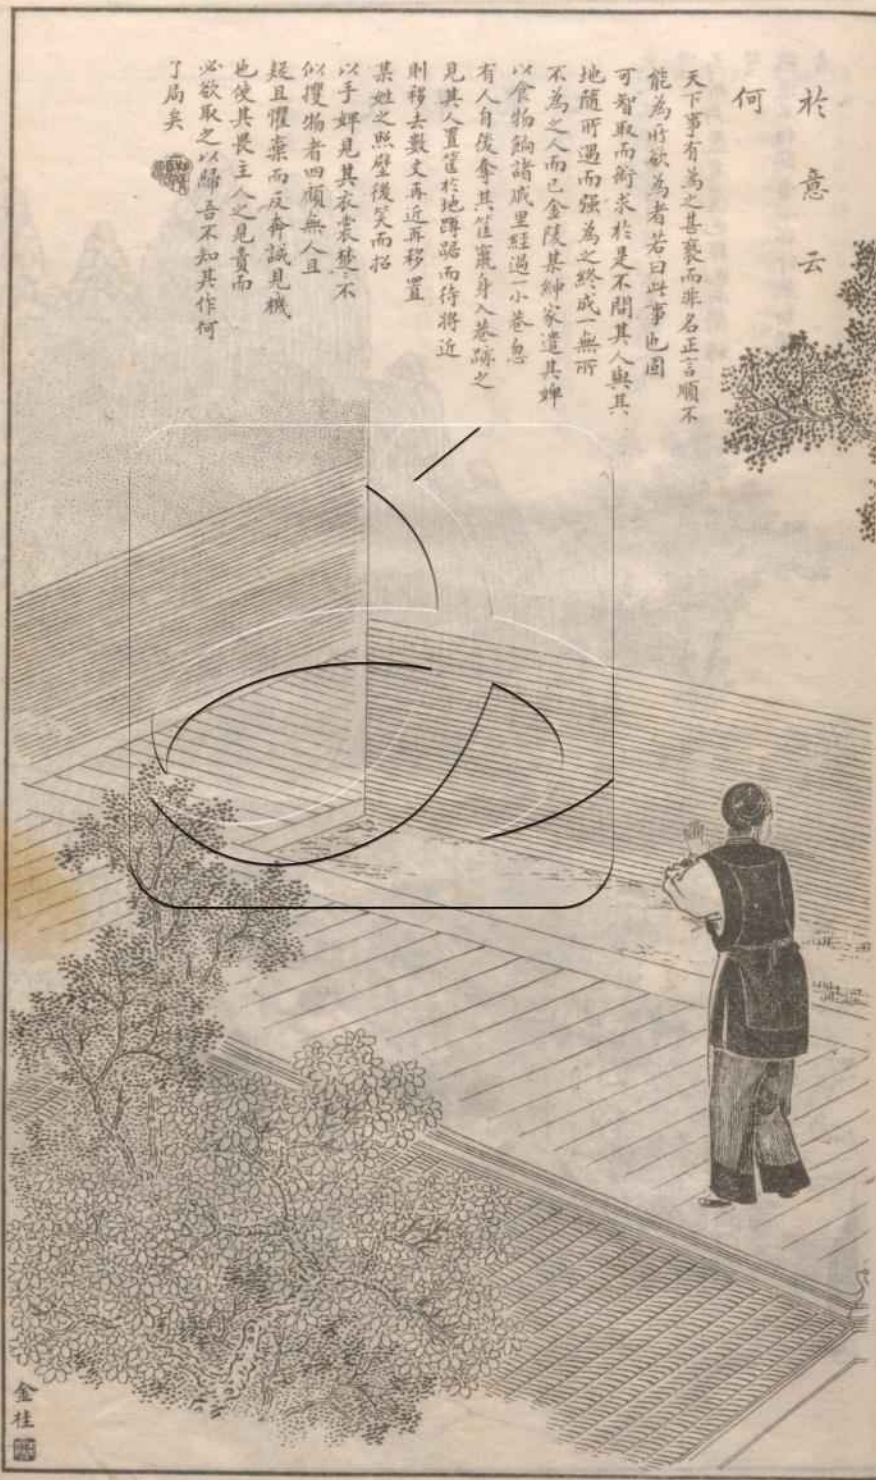 於意云
何
天下事有為之甚褻而非名正言順不
能為所欲為者若曰此事也固
可智取而術求於是不問其人與其
地隨所遇而强為之終成一無所
不為之人而已金陵某紳家遣其婢
以食物餉諸戚里經過一小巷忽
有人自後奪其筐竄身入巷跡之
見其人置筐於地蹲踞而待將近
則移去數丈再近再移置
某姓之照壁後笑而招
以手婢見其衣裳楚〻不
似攫物者四顧無人且
疑且懼棄而反奔誠見機
也使其畏主人之見責而
必欲取之以歸吾不知其作何
了局矣
金桂